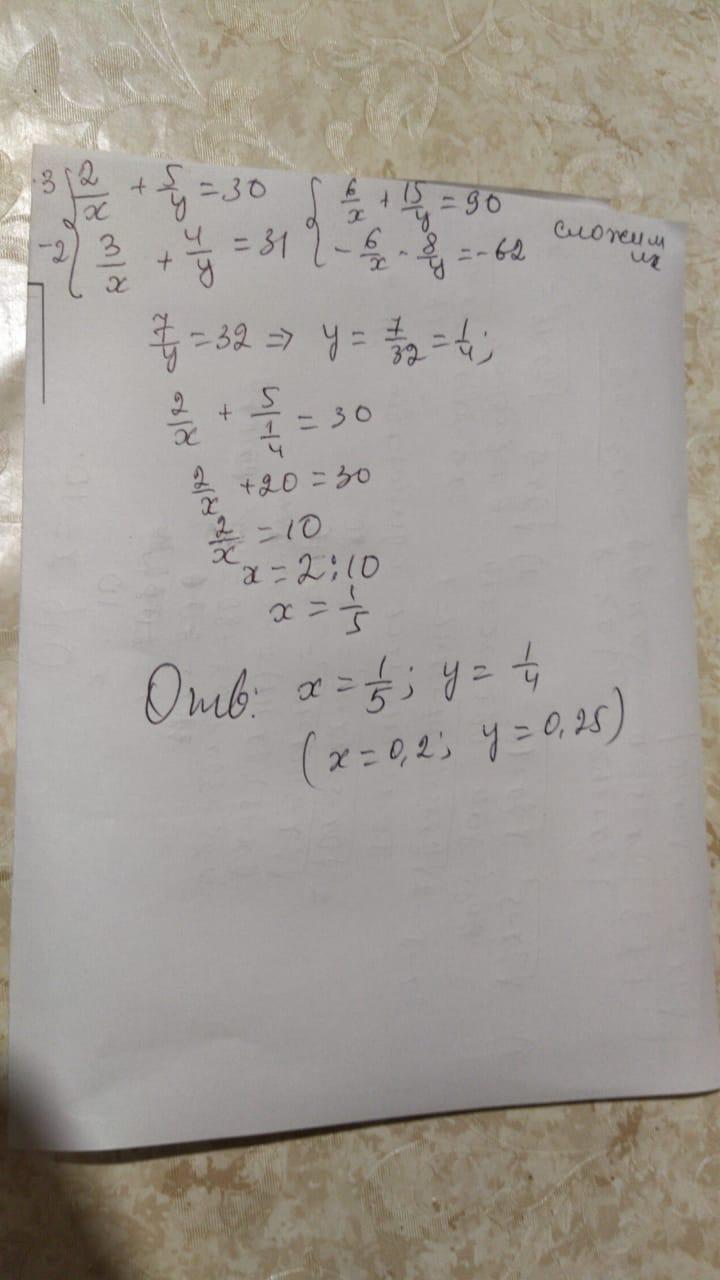 ·3 { 2/x + 5/y = 30 { 6/x + 15/y = 90
-2 { 3/x + 4/y = 31 { - 6/x - 8/y = -62 сложим их
7/y = 32 => y = 7/32 = 1/4;
2/x + 5/(1/4) = 30
2/x + 20 = 30
2/x = 10
x = 2:10
x = 1/5
Отв: x = 1/5; y = 1/4
(x = 0,2; y = 0,25)